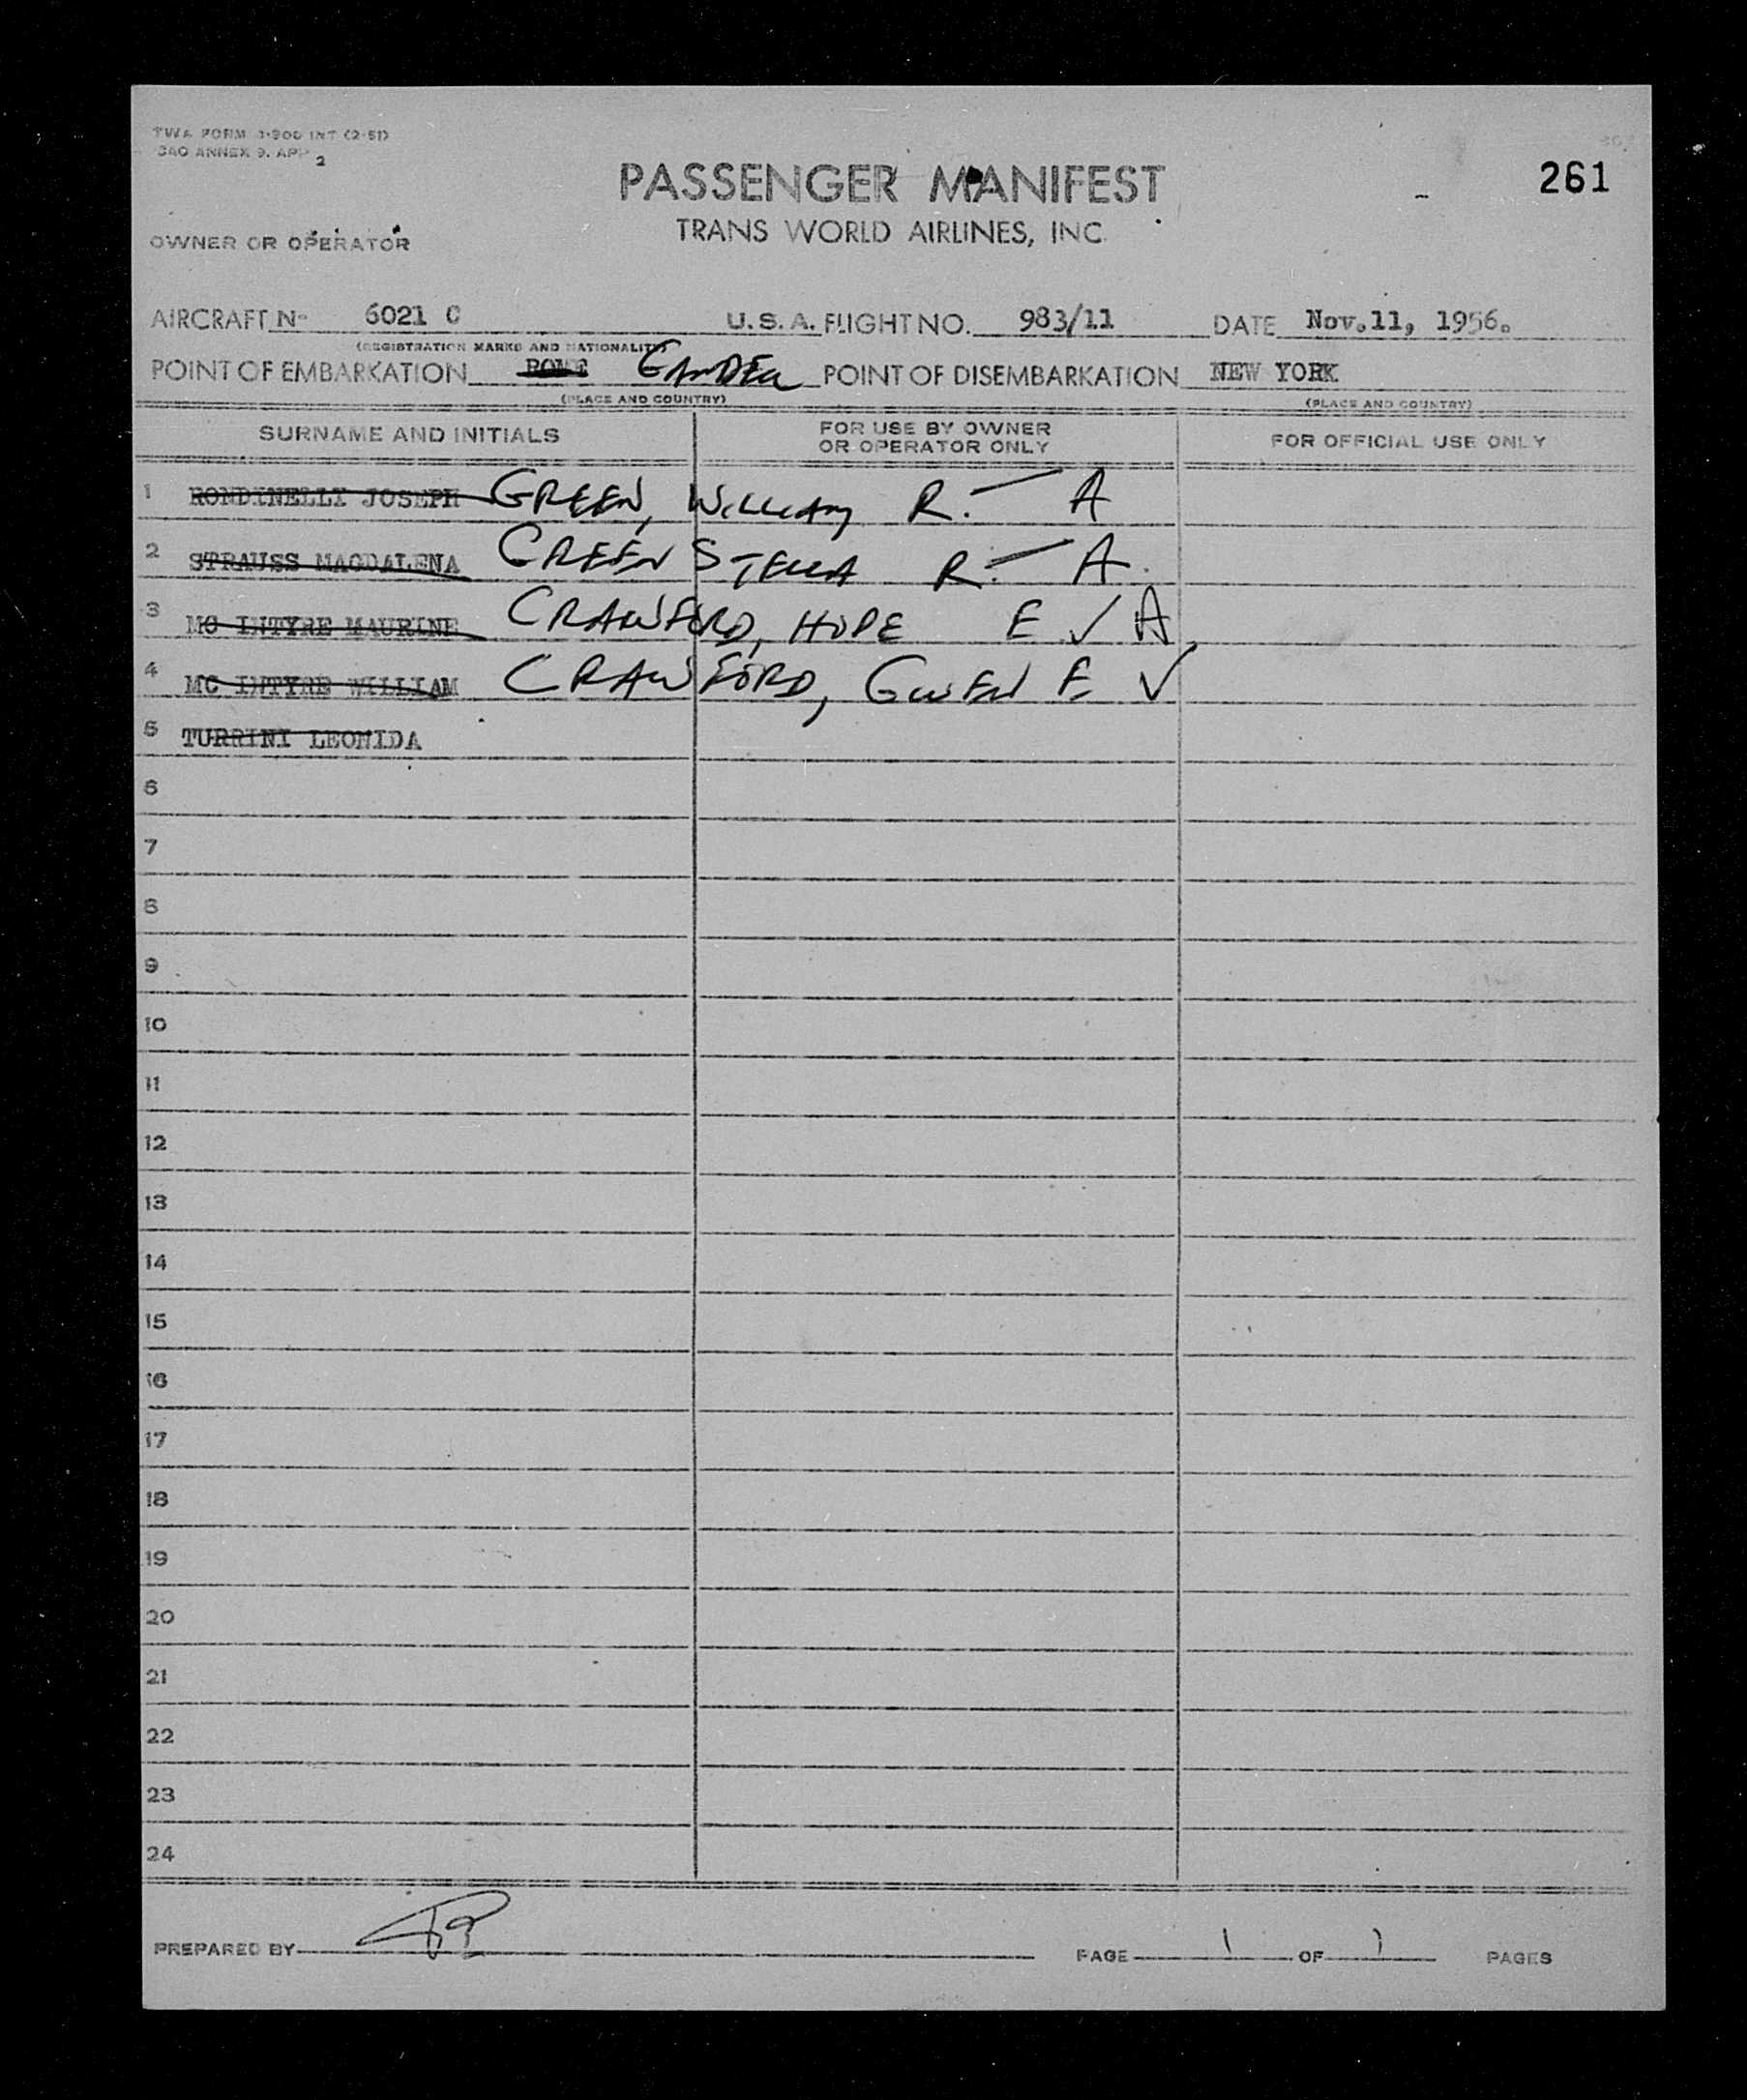 TWA FORM 1-900 INT (2-51)
ICAO ANNEX 9. APP 2
PASSENGER MANIFEST
261
TRANS WORLD AIRLINES, INC.
OWNER OR OPERATOR
AIRCRAFT Nº 6021 C U. S. A. FLIGHT NO. 983/11 DATE Nov.11, 1956.
(REGISTRATION MARKS AND NATIONALITY)
POINT OF EMBARKATION ROME GANDER POINT OF DISEMBARKATION NEW YORK
(PLACE AND COUNTRY) (PLACE AND COUNTRY)
SURNAME AND INITIALS FOR USE BY OWNER OR OPERATOR ONLY FOR OFFICIAL USE ONLY
1 RONDINELLI JOSEPH GREEN, WILLIAM R. A
2 STRAUSS MAGDALENA GREEN STELLA R. A
3 MC INTYRE MAURINE CRAWFORD, HOPE E ✓ A
4 MC INTYRE WILLIAM CRAWFORD, GWEN E ✓
5 TURRINI LEONIDA
6
7
8
9
10
11
12
13
14
15
16
17
18
19
20
21
22
23
24
PREPARED BY PAGE 1 OF 1 PAGES